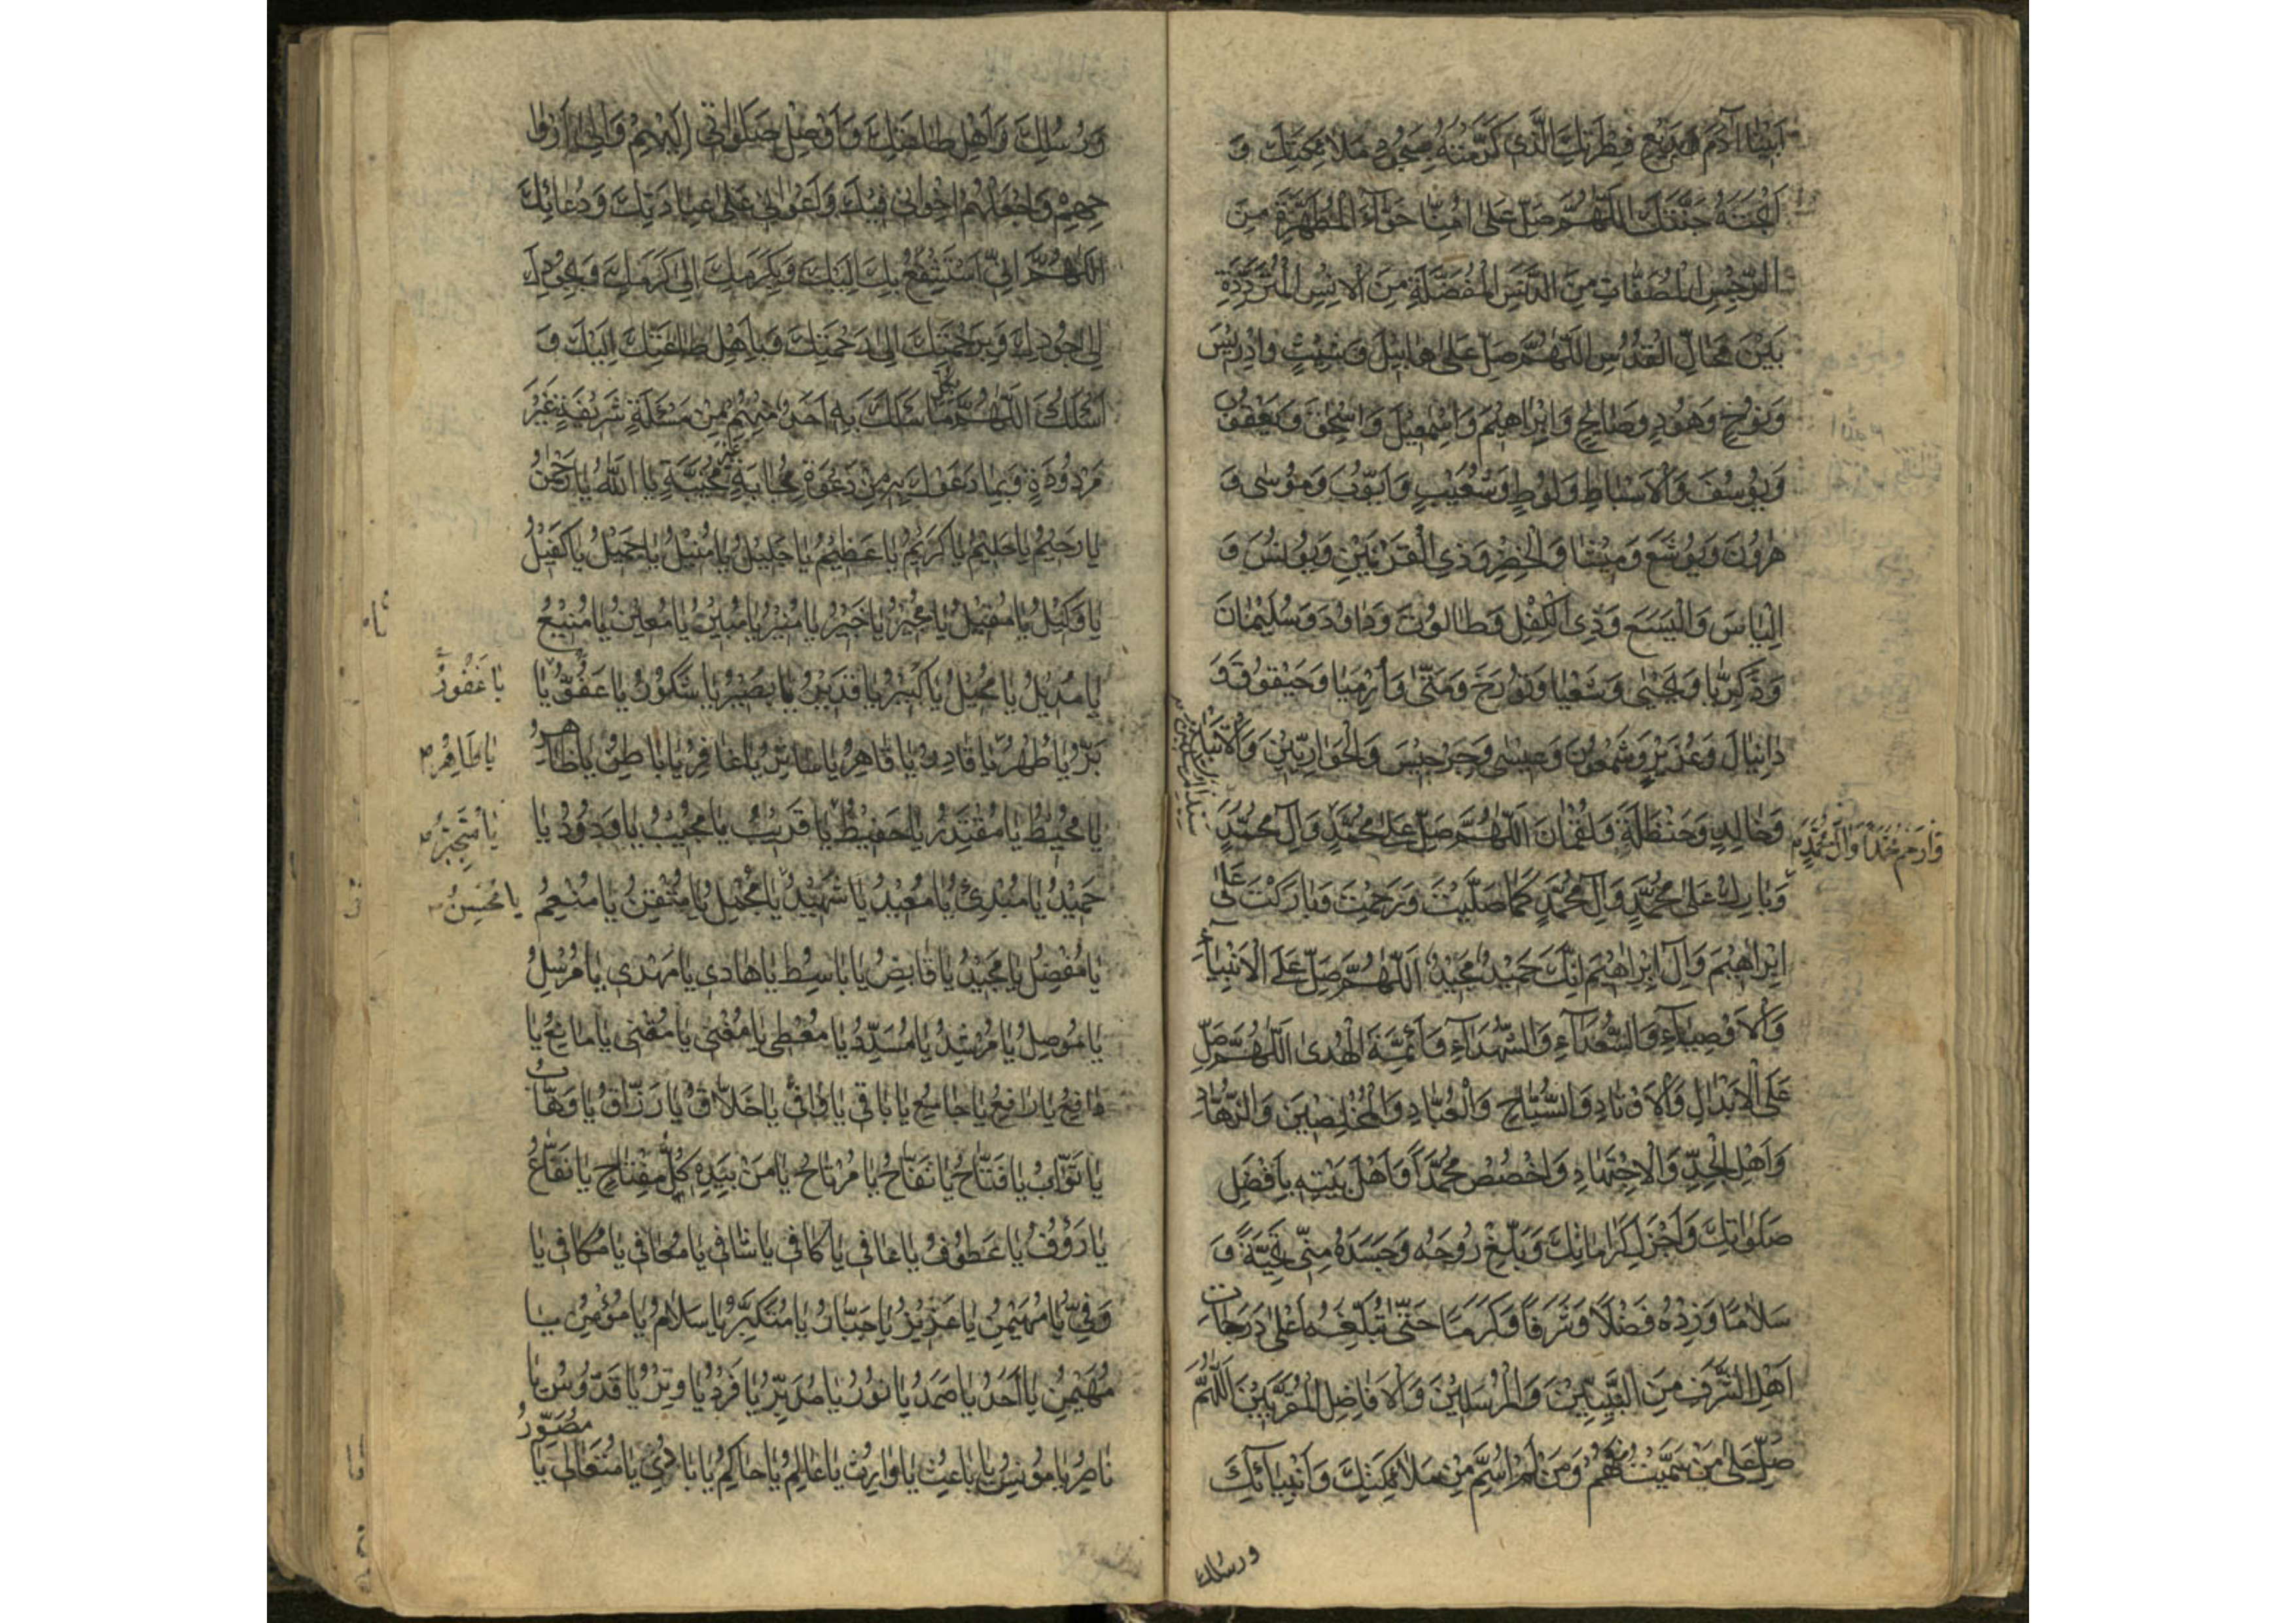 اَبِينَا آدَمَ وَبَدِيعِ فِطْرَتِكَ الَّذِى كَرَّمْتَهُ بِسُجُودِ مَلَائِكَتِكَ وَ
اَبَحْتَهُ جَنَّتَكَ اَللّٰهُمَّ صَلِّ عَلٰى اُمِّنَا حَوَّاءَ الْمُطَهَّرَةِ مِنَ
الرِّجْسِ الْمُصَفَّاتِ مِنَ الدَّنَسِ الْمُفَضَّلَةِ مِنَ الْاِنْسِ الْمُتَرَدِّدَةِ
بَيْنَ مَحَالِّ الْقُدُسِ اَللّٰهُمَّ صَلِّ عَلٰى هَابِيلَ وَشِيْثٍ وَاِدْرِيْسَ
وَنُوحٍ وَهُودٍ وَصَالِحٍ وَاِبْرَاهِيْمَ وَاِسْمٰعِيْلَ وَاِسْحٰقَ وَيَعْقُوْبَ
وَيُوسُفَ وَالْاَسْبَاطِ وَلُوطٍ وَشُعَيْبٍ وَاَيُّوْبَ وَمُوْسٰى وَ
هٰرُونَ وَيُوشَعَ وَمِيْشَا وَالْخِضْرِ وَذِى الْقَرْنَيْنِ وَيُونُسَ وَ
اِلْيَاسَ وَالْيَسَعَ وَذِى الْكِفْلِ وَطَالُوْتَ وَدَاوُدَ وَسُلَيْمٰانَ
وَزَكَرِيَّا وَيَحْيٰى وَشَعْيَا وَتُوْرَخَ وَمَتّٰى وَاُرْمِيَا وَحَيْقُوْقَ وَ
دَانِيَالَ وَعُزَيْرٍ وَشَمْعُوْنَ وَعِيسٰى وَجِرْجِيْسَ وَالْحَوَارِيِّيْنَ وَالْاَتْبَاعِ
وَخَالِدٍ وَحَنْظَلَةَ وَلُقْمَانَ اَللّٰهُمَّ صَلِّ عَلٰى مُحَمَّدٍ وَآلِ مُحَمَّدٍ
وَارْحَمْ مُحَمَّدًا وَآلَ مُحَمَّدٍ
وَبَارِكْ عَلٰى مُحَمَّدٍ وَآلِ مُحَمَّدٍ كَمَا صَلَّيْتَ وَرَحِمْتَ وَبَارَكْتَ عَلٰى
اِبْرَاهِيْمَ وَآلِ اِبْرَاهِيْمَ اِنَّكَ حَمِيْدٌ مَجِيْدٌ اَللّٰهُمَّ صَلِّ عَلَى الْاَنْبِيَاءِ
وَالْاَوْصِيَاءِ وَالسُّعَدَاءِ وَالشُّهَدَاءِ وَاَئِمَّةِ الْهُدٰى اَللّٰهُمَّ صَلِّ
عَلَى الْاَبْدَالِ وَالْاَوْتَادِ وَالسُّيَّاحِ وَالْعُبَّادِ وَالْمُخْلِصِيْنَ وَالزُّهَّادِ
وَاَهْلِ الْجِدِّ وَالْاِجْتِهَادِ وَاخْصُصْ مُحَمَّدًا وَاَهْلَ بَيْتِهِ بِاَفْضَلِ
صَلَوَاتِكَ وَاَجْزَلِ كَرَامَاتِكَ وَبَلِّغْ رُوْحَهُ وَجَسَدَهُ مِنِّى تَحِيَّةً وَ
سَلَامًا وَزِدْهُ فَضْلًا وَشَرَفًا وَكَرَمًا حَتّٰى تُبَلِّغَهُ اَعْلٰى دَرَجَاتِ
اَهْلِ الشَّرَفِ مِنَ النَّبِيِّيْنَ وَالْمُرْسَلِيْنَ وَالْاَفَاضِلِ الْمُقَرَّبِيْنَ اَللّٰهُمَّ
صَلِّ عَلٰى مَنْ سَمَّيْتُ وَمَنْ لَمْ اُسَمِّ مِنْ مَلَائِكَتِكَ وَاَنْبِيَائِكَ
ورسلك
وَرُسُلِكَ وَاَهْلِ طَاعَتِكَ وَاَوْصِلْ صَلَوَاتِى اِلَيْهِمْ وَاِلٰى اَرْوَا
حِهِمْ وَاجْعَلْهُمْ اِخْوَانِى فِيْكَ وَاَعْوَانِى عَلٰى عِبَادَتِكَ وَدُعَائِكَ
اَللّٰهُمَّ اِنِّى اَسْتَشْفِعُ بِكَ اِلَيْكَ وَبِكَرَمِكَ اِلٰى كَرَمِكَ وَبِجُوْدِكَ
اِلٰى جُوْدِكَ وَبِرَحْمَتِكَ اِلٰى رَحْمَتِكَ وَبِاَهْلِ طَاعَتِكَ اِلَيْكَ وَ
اَسْئَلُكَ اَللّٰهُمَّ بِكُلِّ مَا سَئَلَكَ بِهِ اَحَدٌ مِنْهُمْ مِنْ مَسْئَلَةٍ شَرِيْفَةٍ غَيْرِ
مَرْدُوْدَةٍ وَبِمَا دَعَوْكَ بِهِ مِنْ دَعْوَةٍ مُجَابَةٍ غَيْرِ مُخَيَّبَةٍ يَا اَللّٰهُ يَا رَحْمٰنُ
يَا رَحِيْمُ يَا حَلِيْمُ يَا كَرِيْمُ يَا عَظِيْمُ يَا جَلِيْلُ يَا مُنِيْلُ يَا جَمِيْلُ يَا كَفِيْلُ
يَا وَكِيْلُ يَا مُقِيْلُ يَا مُجِيْرُ يَا خَبِيْرُ يَا مُنِيْرُ يَا مُبِيْنُ يَا مُعِيْنُ يَا مُنِيْعُ
يَا مُدِيْلُ يَا مُحِيْلُ يَا كَبِيْرُ يَا قَدِيْرُ يَا بَصِيْرُ يَا شَكُوْرُ يَا عَفُوُّ يَا
يَا غَفُوْرُ
بَرُّ يَا طُهْرُ يَا قَادِرُ يَا قَاهِرُ يَا سَاتِرُ يَا غَافِرُ يَا بَاطِنُ يَا ظَاهِرُ
يَا طَاهِرُ
يَا مُحِيْطُ يَا مُقْتَدِرُ يَا حَفِيْظُ يَا قَرِيْبُ يَا مُجِيْبُ يَا وَدُوْدُ يَا
حَمِيْدُ يَا مُبْدِئُ يَا مُعِيْدُ يَا شَهِيْدُ يَا مُجْمِلُ يَا مُتْقِنُ يَا مُنْعِمُ
يَا مُحْسِنُ
يَا مُفْضِلُ يَا مَجِيْدُ يَا قَابِضُ يَا بَاسِطُ يَا هَادِى يَا مَهْدِى يَا مُرْسِلُ
يَا مُوْصِلُ يَا مُرْشِدُ يَا مُسَدِّدُ يَا مُعْطِى يَا مُغْنِى يَا مُقْنِى يَا مَانِعُ يَا
دَافِعُ يَا رَافِعُ يَا جَامِعُ يَا بَاقِى يَا وَاقِى يَا خَلَّاقُ يَا رَزَّاقُ يَا وَهَّابُ
يَا تَوَّابُ يَا فَتَّاحُ يَا نَفَّاحُ يَا مُرْتَاحُ يَا مَنْ بِيَدِهِ كُلُّ مِفْتَاحٍ يَا نَفَّاعُ
يَا رَؤُفُ يَا عَطُوْفُ يَا عَافِى يَا كَافِى يَا شَافِى يَا مُعَافِى يَا مُكَافِى يَا
وَفِىُّ يَا مُهَيْمِنُ يَا عَزِيْزُ يَا جَبَّارُ يَا مُتَكَبِّرُ يَا سَلَامُ يَا مُؤْمِنُ يَا
مُهَيْمِنُ يَا اَحَدُ يَا صَمَدُ يَا نُوْرُ يَا مُدَبِّرُ يَا فَرْدُ يَا وِتْرُ يَا قُدُّوْسُ يَا
نَاصِرُ يَا مُوْنِسُ يَا بَاعِثُ يَا وَارِثُ يَا عَالِمُ يَا حَاكِمُ يَا بَادِئُ يَا مُتَعَالِى يَا
مُصَوِّرُ